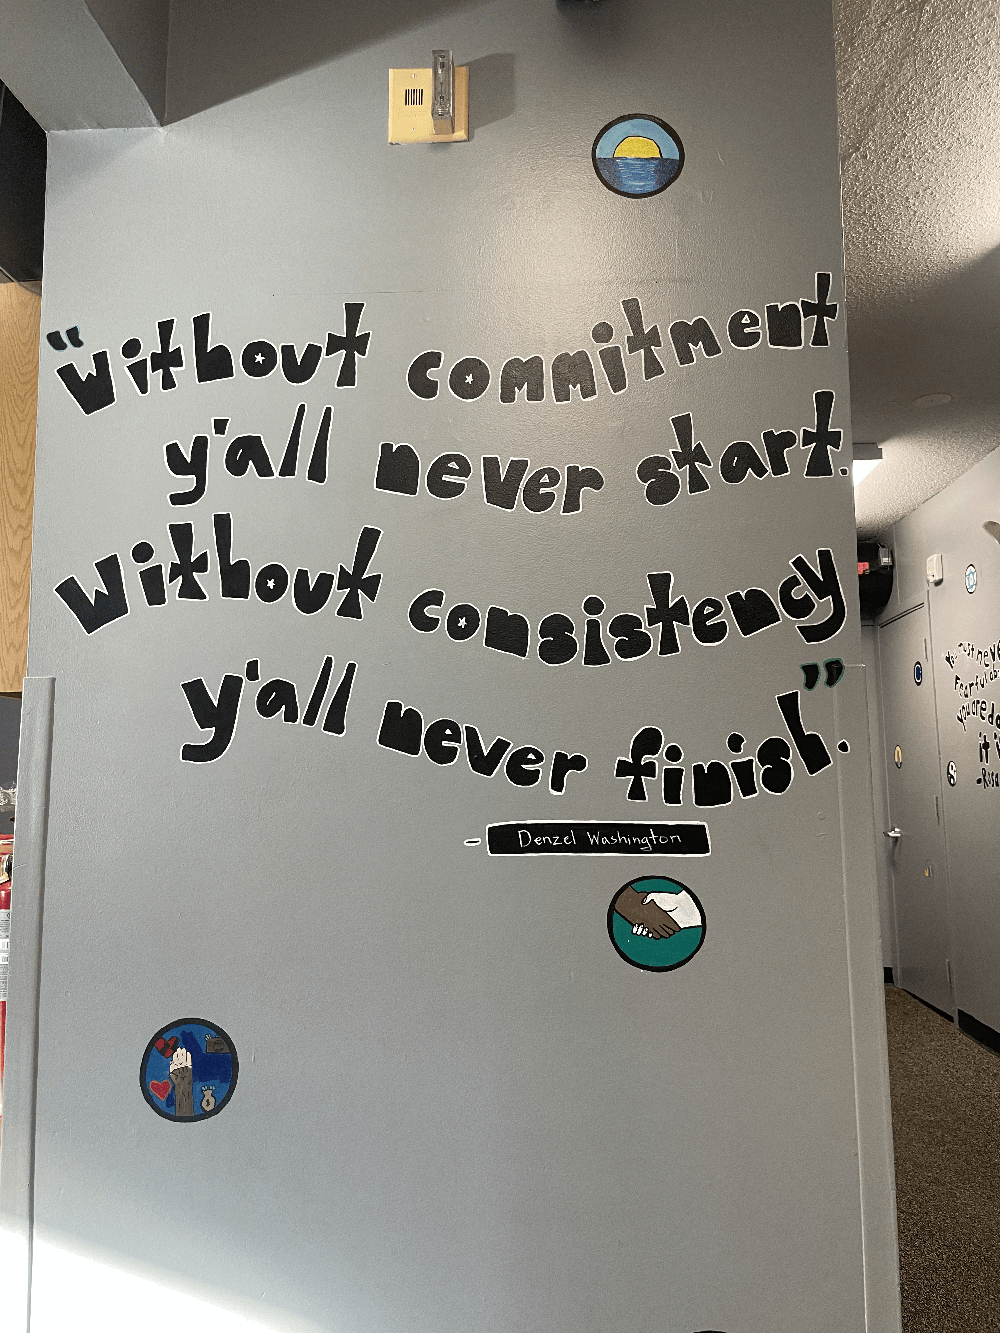 “Without commitment
y'all never start.
Without consistency
y'all never finish.”
- Denzel Washington
never
you are
it